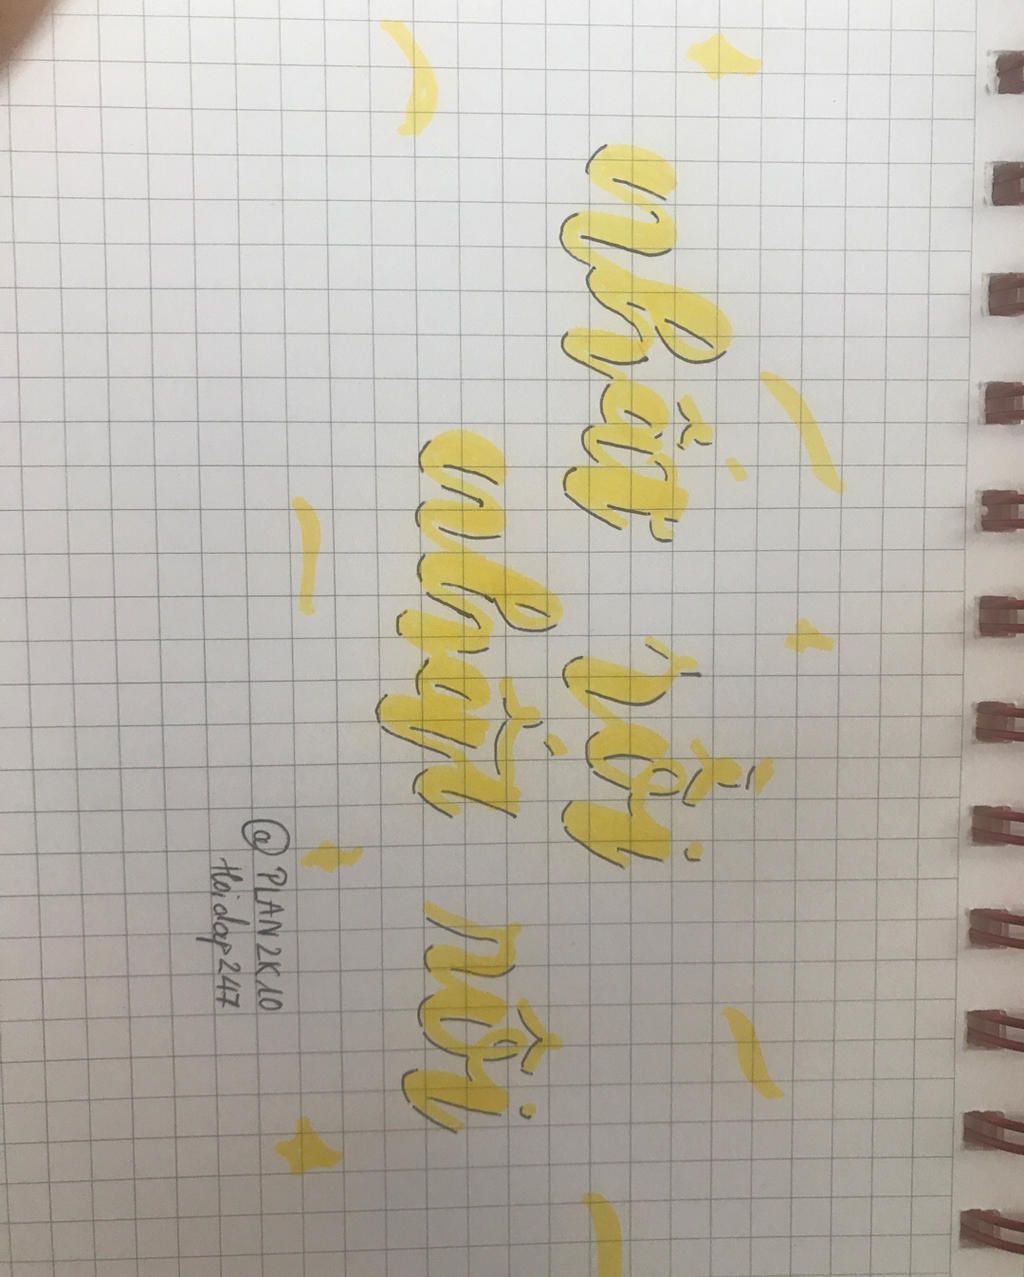 nhất rồi
nhất nôi
@PLAN2K10
Hoidap247